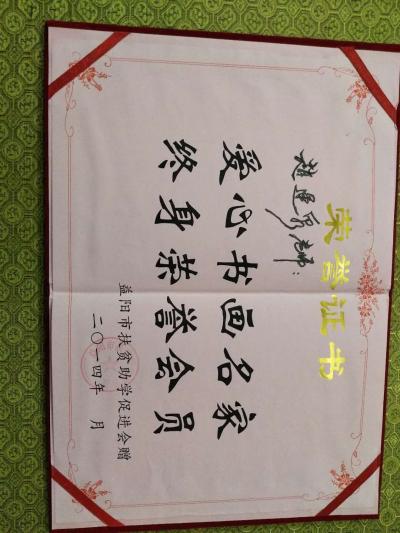 荣誉证书
老师：
爱心书画名家
终身荣誉会员
益阳市扶贫助学促进会赠
二〇一四年 月